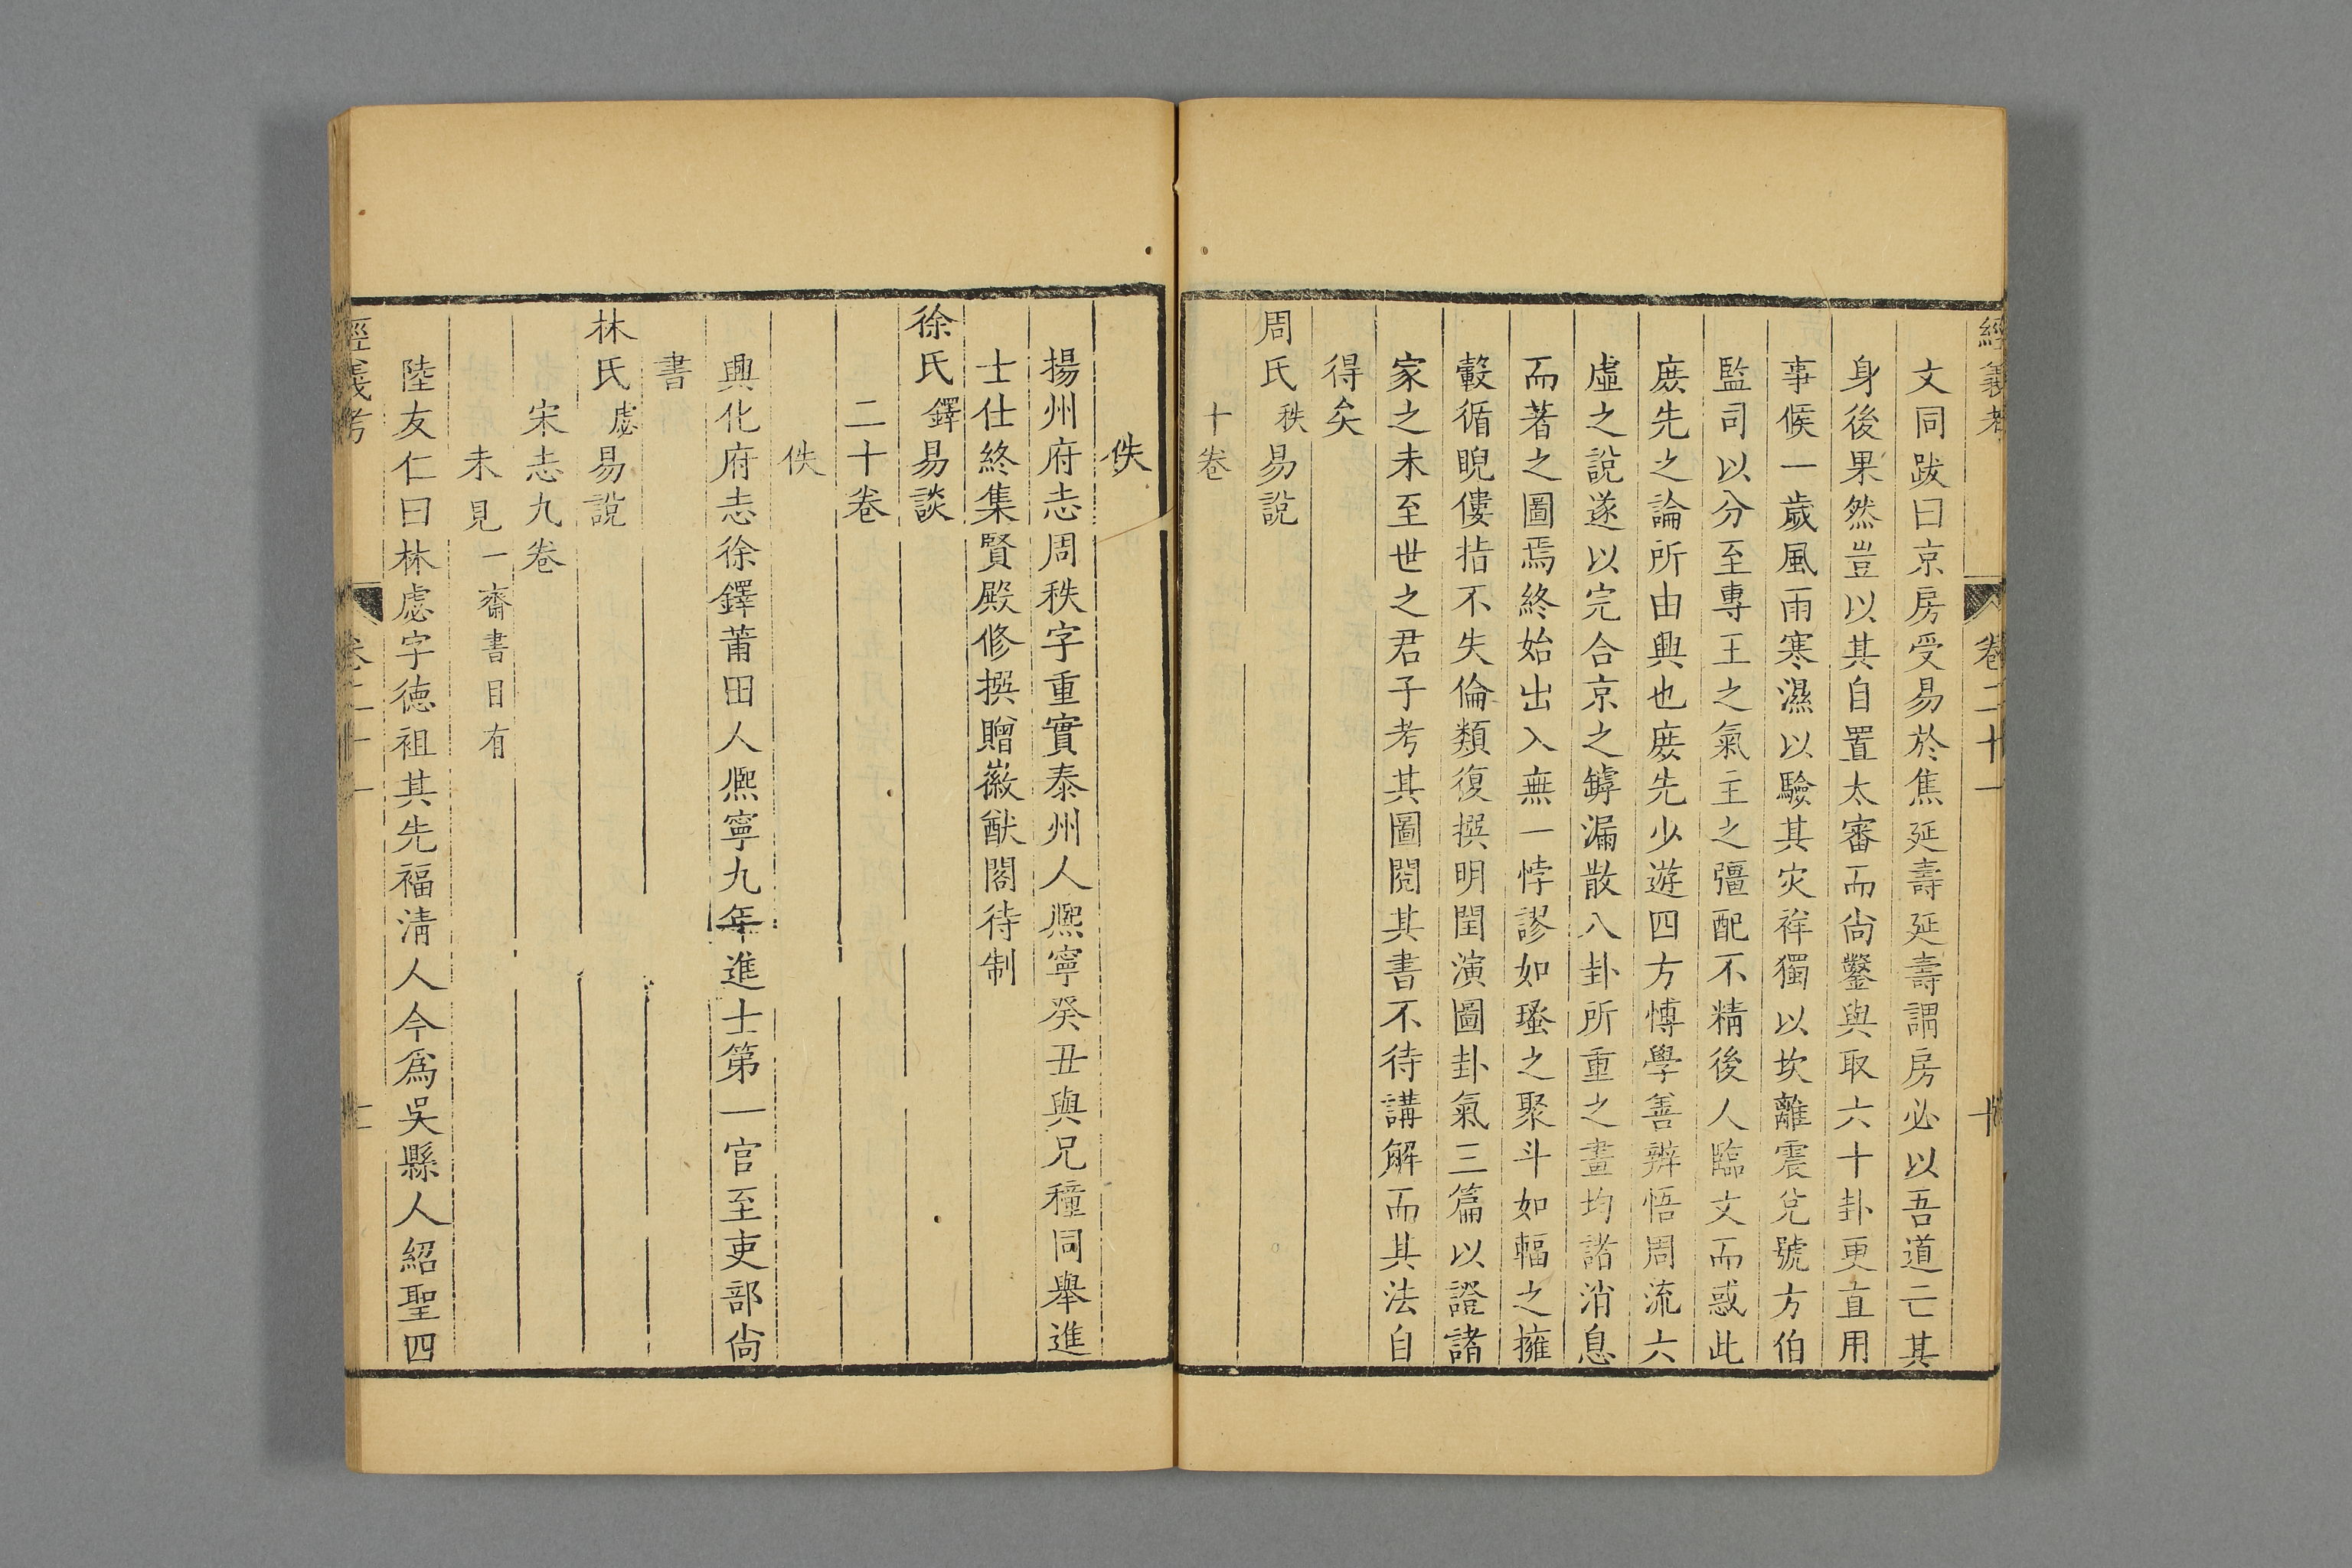 經義考 卷二十一 十
文同跋曰京房受易於焦延壽延壽謂房必以吾道亡其
身後果然豈以其自置太審而尚鑿與取六十卦更直用
事候一歲風雨寒濕以驗其灾祥獨以坎離震兌號方伯
監司以分至專王之氣主之彊配不精後人臨文而惑此
庻先之論所由興也庻先少遊四方博學善辨悟周流六
虛之說遂以完合京之罅漏散八卦所重之畫均諸消息
而著之圖焉終始出入無一悖謬如璣之聚斗如輻之擁
轂循睨僂指不失倫類復撰明閏演圖卦氣三篇以證諸
家之未至世之君子考其圖閱其書不待講解而其法自
得矣
周氏秩易說
十卷
佚
揚州府志周秩字重實泰州人熈寧癸丑與兄穜同舉進
士仕終集賢殿修撰贈徽猷閣待制
徐氏鐸易談
二十卷
佚
興化府志徐鐸莆田人熈寧九年進士第一官至吏部尚
書
林氏慮易說
宋志九卷
未見一齋書目有
陸友仁曰林慮字德祖其先福清人今爲吳縣人紹聖四
經義考 卷二十一 十一